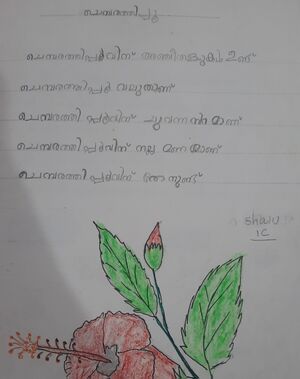 ചെമ്പരത്തിപ്പൂ
ചെമ്പരത്തിപ്പൂവിന് അഞ്ചിതളുകൾ ഉണ്ട്
ചെമ്പരത്തിപ്പൂ വലുതാണ്
ചെമ്പരത്തി പ്പൂവിന് ചുവന്ന നിറമാണ്
ചെമ്പരത്തിപ്പൂവിന് നല്ല മണമാണ്
ചെമ്പരത്തി പ്പൂവിന്
1C